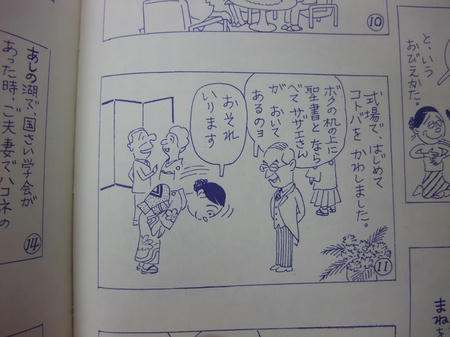 ⑩
と、いう
おびえかた。
式場で、はじめて
コトバを かわしました。
ボクの机の上に
聖書と なら
べて サザエさん
が おいて
あるのヨ
おそれ
いります
⑪
あしの湖で国さい学会が
あった時、ご夫妻でハコネの
⑭